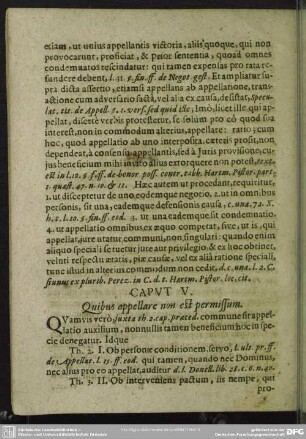 etiam, ut unius appellantis victoria, aliis quoque, qui non
provocarunt, proficiat, & prior sententia, quoad omnes
condemnatos rescindatur: qui tamen expensas pro rata re-
fundere debent, l. 31. §. fin. ff. de Negot. gest. Et ampliatur su-
pra dicta assertio, etiamsi appellans ab appellatione, trans-
actione cum adversario facta, vel alia ex causa, desistat, Specu-
lat. tit. de Appell. §. 1. vers. sed quid si
pellat, diserte verbis protestetur, se solùm pro eo quod sua
interest, non in commodum alterius, appellare: ratio; cum
hoc, quod appellatio ab uno interposita, cæteris prosit, non
dependeat, à consensu appellantis, sed à Juris provisione, cu-
jus beneficium mihi invito alius extorquere non potest,
est in l. 10. §. ff. de bonor. poss. contr. tabb. Hartm. Pistor. part.
quæst. 47. n. 10. & 11. Hæc autem ut procedant, requiritur,
1. ut disceptetur de uno eodemque negotio, 2. ut in omnibus
personis, sit una, eademque defensionis causa, c. una 72. X.
h. t. l. 10. §. fin. ff. eod. 3. ut una eademque sit condemnatio.
4. ut appellatio omnibus ex æquo competat, sive, ut is, qui
appellat, jure utatur communi, non singulari: quando enim
aliquo speciali se tuetur jure aut privilegio, & ex hoc obtinet,
veluti respectu ætatis, piæ causæ, vel ex alia ratione speciali,
tunc istud in alterius commodum non cedit, d. c. una. l. 2. C.
si unus ex plurib. Perez. in C. d. t. Hartm. Pistor. loc. cit.
CAPUT V.
Quibus appellare non est permissum.
QUamvis verò juxta th. 2. cap. præced. commune sit appel-
latio auxilium, nonnullis tamen beneficium hoc in spe-
cie denegatur. Idque
Th. 2. I. Ob personæ conditionem. servo, l. ult. pr. ff.
de Appellat. l. 15. ff. eod. qui tamen, quando nec Dominus,
nec alius pro eo appellat, auditur d. l. Donell. lib. 28. c. 6. n. 40.
Th. 3. II. Ob interveniens pactum, iis nempe, qui
pro-